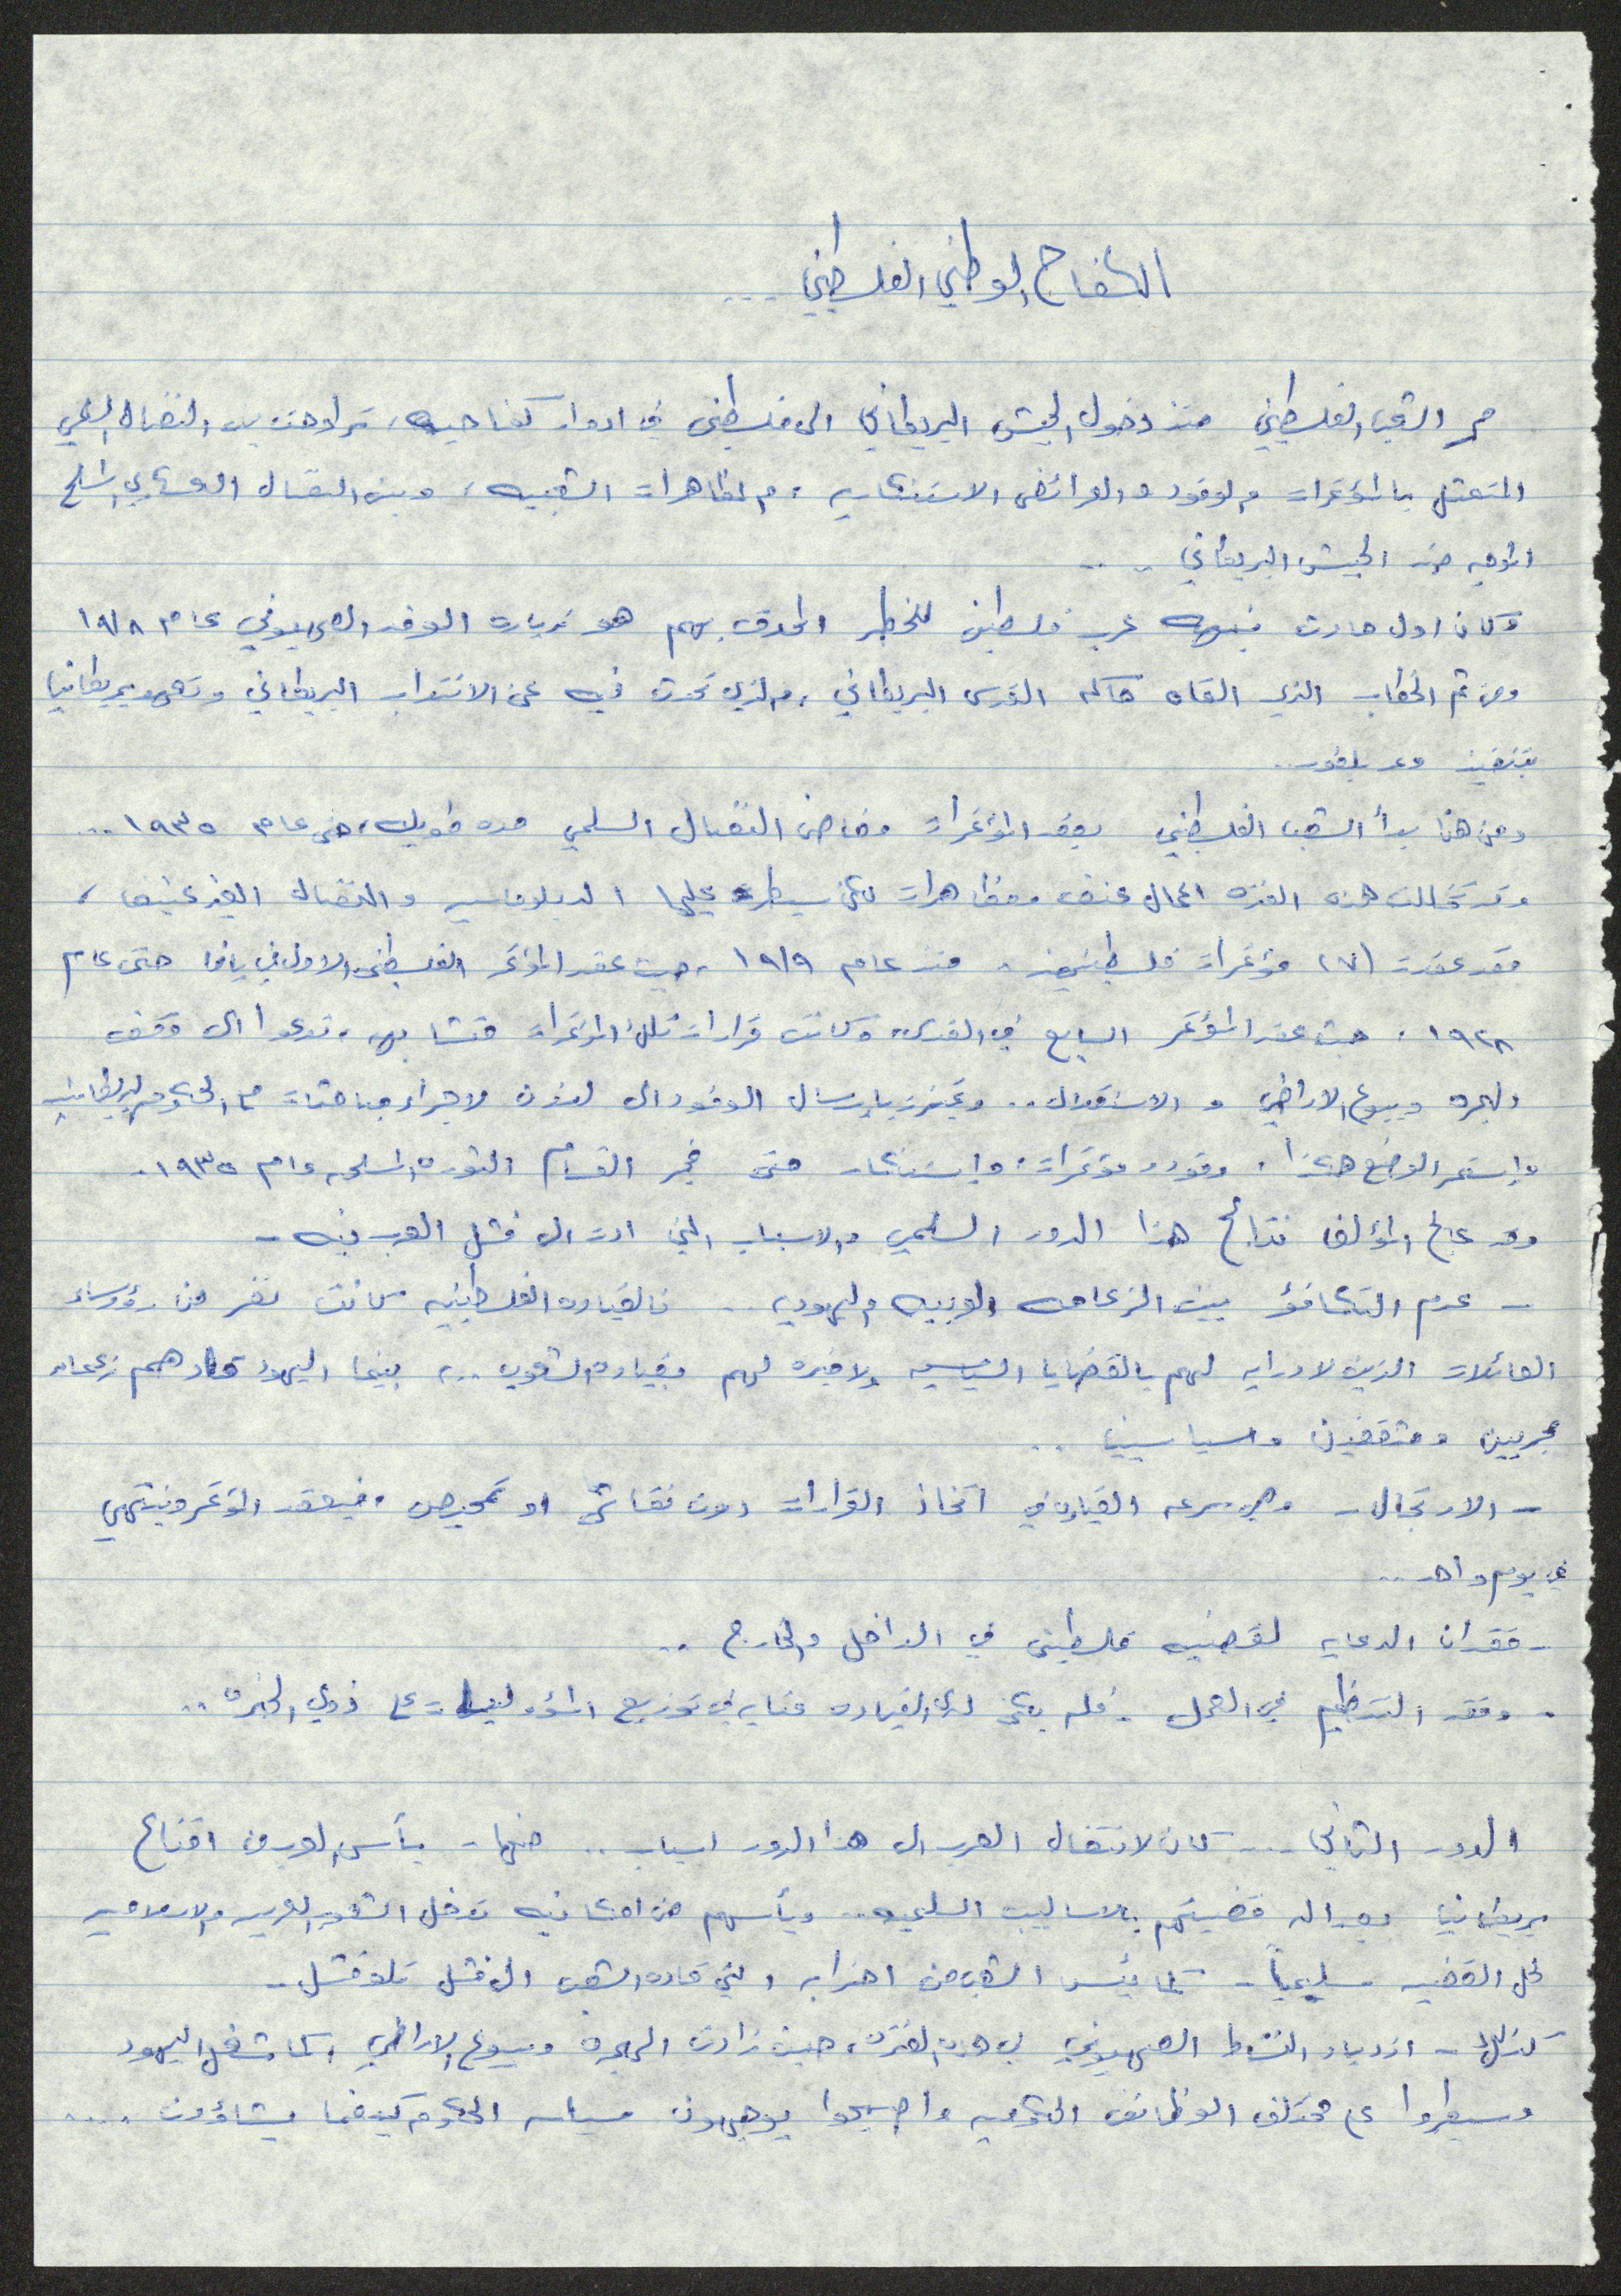 الكفاح الوطني الفلسطيني ...
مر الشعب الفلسطيني منذ دخول الجيش البريطاني الى فلسطين في ادوار كفاحيه، تراوحت بين النضال السلمي
المتمثل بالمؤتمرات والوفود والعرائض الاستنكاريه، والمظاهرات الشعبيه، وبين النضال العسكري المسلح
الموجه ضد الجيش البريطاني ...
وكان اول حادث نبه عرب فلسطين للخطر المحدق بهم هو زياره الوفد الصهيوني عام ١٩١٨
ومن ثم الخطاب الذي القاه حاكم القدس البريطاني، والذي تحدث فيه عن الانتداب البريطاني وتعهد بريطانيا
بتنفيذ وعد بلفور..
ومن هنا بدأ الشعب الفلسطيني بعقد المؤتمرات وخاض النضال السلمي مده طويله، حتى عام ١٩٣٥ ...
وقد تخللت هذه الفتره اعمال عنف ومظاهرات لكن سيطر عليها الدبلوماسيه والنضال الغير عنيف،
فقد عقدت (٧) مؤتمرات فلسطينيه، منذ عام ١٩١٩، حيث عقد المؤتمر الفلسطيني الاول في يافا حتى عام
١٩٢٨، حيث عقد المؤتمر السابع في القدس، وكانت قرارات تلك المؤتمرات متشابهه، تدعوا الى وقف
الهجره وبيوع الاراضي والاستقلال.. وتميزت بإرسال الوفود الى لندن لاجراء مباحثات مع الحكومه البريطانيه
وإستمر الوضع هكذا، وفود ومؤتمرات، وإستنكار حتى فجر القسام الثوره المسلحه عام ١٩٣٥.
وقد عالج المؤلف نتائج هذا الدور السلمي والاسباب التي ادت الى فشل العرب فيه -
- عدم التكافؤ بين الزعامه العربيه واليهوديه .. فالقياده الفلسطينيه كانت نفر من رؤوساء
العائلات الذين لا درايه لهم بالقضايا السياسيه ولا خبره لهم بقياده الشعوب ..، بينما اليهود قادهم زعماء
مجربين ومثقفين وسياسيين ..
- الارتجال - وهي سرعه القياده في اتخاذ القرارات دون نقاش او تمحيص، فيعقد المؤتمر وينتهي
في يوم واحد ..
- فقدان الدعايه لقضيه فلسطين في الداخل والخارج ..
- وفقد التنظيم في العمل. فلم يكن لدى القياده عنايه في توزيع المسؤوليات على ذوي الخبره ..
الدور الثاني ... كان لانتقال العرب الى هذا الدور اسباب .. منها - يأس العرب من اقناع
بريطانيا بعداله قضيتهم بالاساليب السلميه .. ويأسهم من امكانيه تدخل الشعوب العربيه والاسلاميه
لحل القضيه سلمياً - كما يئس الشعب من احزابه والتي قادت الشعب الى فشل تلو فشل -
كذلك - ازدياد النشاط الصهيوني في هذه الفتره، حيث زادت الهجره وبيوع الاراضي، كما شغل اليهود
وسيطروا على مختلف الوظائف الحكوميه واصبحوا يوجهون سياسه الحكومه كيفما يشاؤون ....